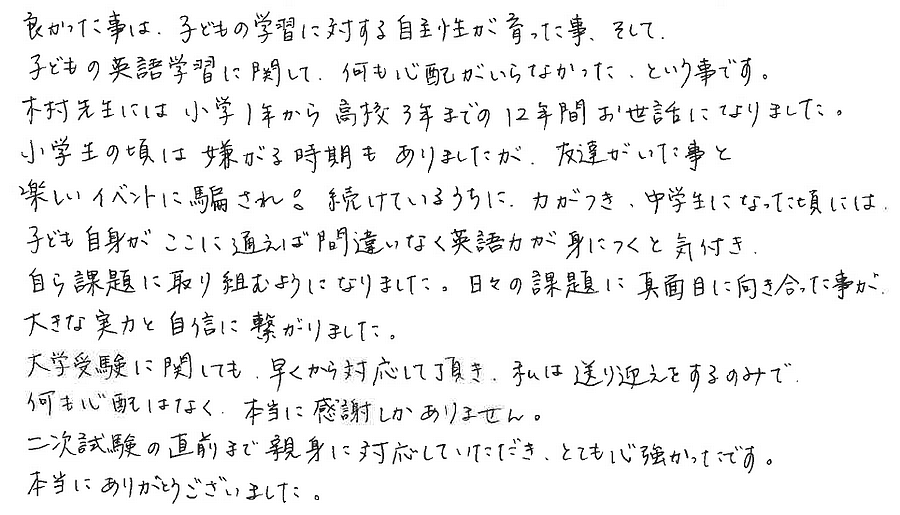 良かった事は、子どもの学習に対する自主性が育った事、そして、
子どもの英語学習に関して、何も心配がいらなかった、という事です。
木村先生には小学1年から高校3年までの12年間お世話になりました。
小学生の頃は嫌がる時期もありましたが、友達がいた事と
楽しいイベントに騙され。続けているうちに、力がつき、中学生になった頃には、
子ども自身がここに通えば間違いなく英語力が身につくと気付き、
自ら課題に取り組むようになりました。日々の課題に真面目に向き合った事が、
大きな実力と自信に繋がりました。
大学受験に関しても、早くから対応して頂き、私は送り迎えをするのみで、
何も心配はなく、本当に感謝しかありません。
二次試験の直前まで親身に対応していただき、とても心強かったです。
本当にありがとうございました。